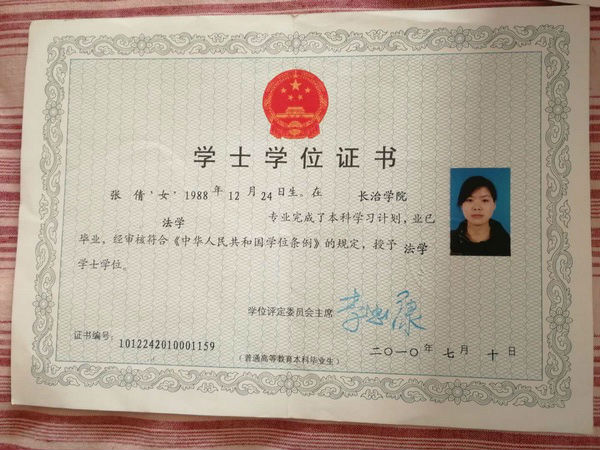 学士学位证书
张倩，女，1988年12月24日生。在 长治学院
法学 专业完成了本科学习计划，业已
毕业，经审核符合《中华人民共和国学位条例》的规定，授予 法学
学士学位。
学位评定委员会主席
证书编号：1012242010001159
二〇一〇年 七 月 十 日
（普通高等教育本科毕业生）